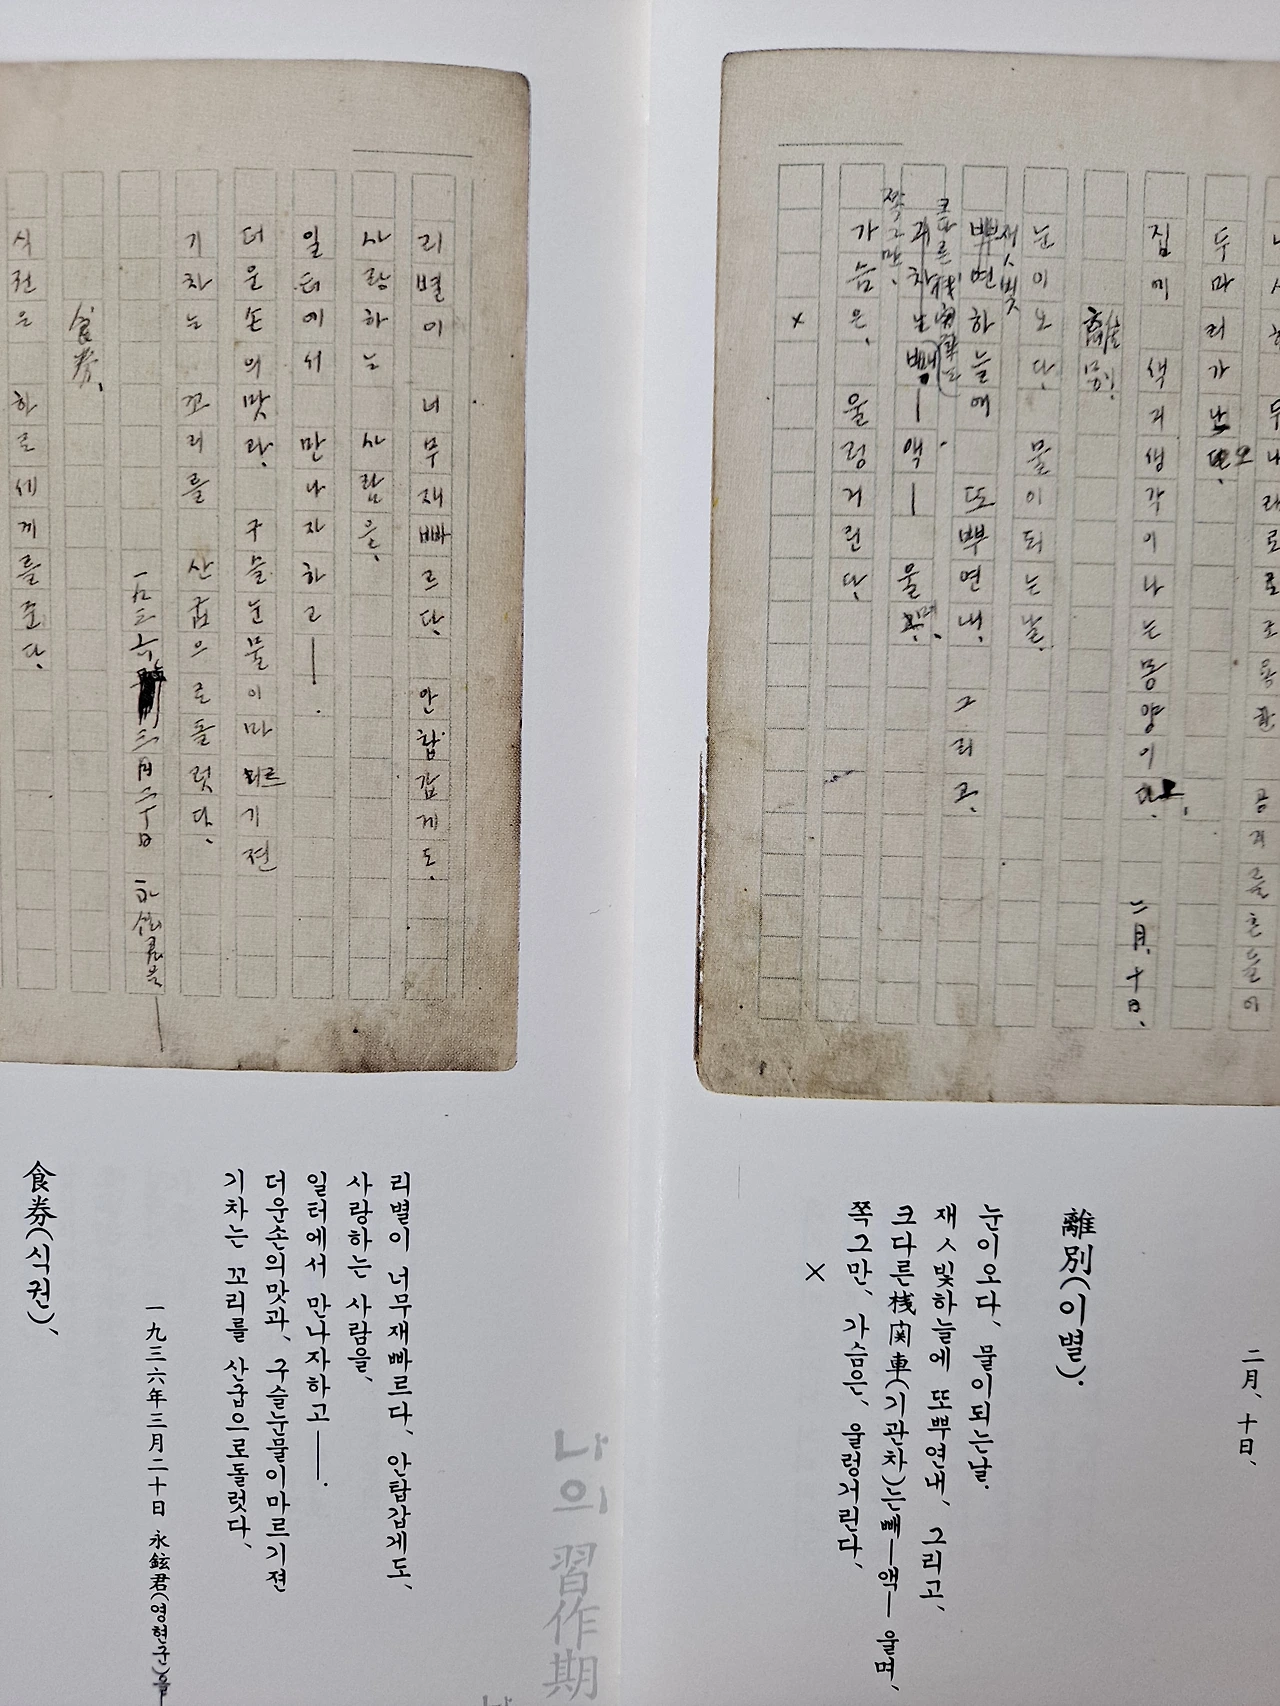 두나래로조용한 공기를흔들어
두마리가 나오.
집에 색기생각이나는 몽양이오. 二月、十日、
離別.
눈이오다、물이되는날.
재ㅅ빛하늘에 또뿌연내、그리고、
크다른機関車는빼—액— 울며、
쪽그만、가슴은、울렁거린다、
×
二月、十日、
離別(이별).
눈이오다、물이되는날.
재ㅅ빛하늘에 또뿌연내、그리고、
크다른機関車(기관차)는빼—액— 울며、
쪽그만、가슴은、울렁거린다、
×
리별이 너무재빠르다、안탑갑게도、
사랑하는 사람을、
일터에서 만나자하고——.
더운손의맛과、구슬눈물이마르기젼
기차는 꼬리를 산굽으로돌렷다、
一九三六年三月二十日 永鉉君을—
食券、
식권은 하로세끼를준다、
리별이 너무재빠르다、안탑갑게도、
사랑하는 사람을、
일터에서 만나자하고——.
더운손의맛과、구슬눈물이마르기젼
기차는 꼬리를 산굽으로돌렷다、
一九三六年三月二十日 永鉉君(영현군)을—
食券(식권)、
나의 習作期